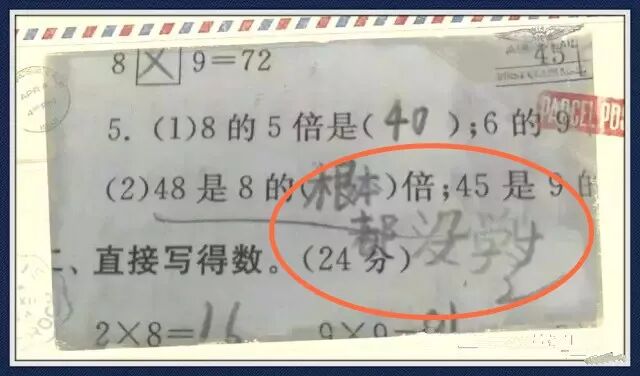 8 × 9=72
AIR MAIL
45
5. (1)8 的 5 倍是( 40 );6 的 9
PARCEL POS
(2)48 是 8 的(根本)倍;45 是 9 的
都没学
二、直接写得数。(24 分)
2×8=16 9×9=81